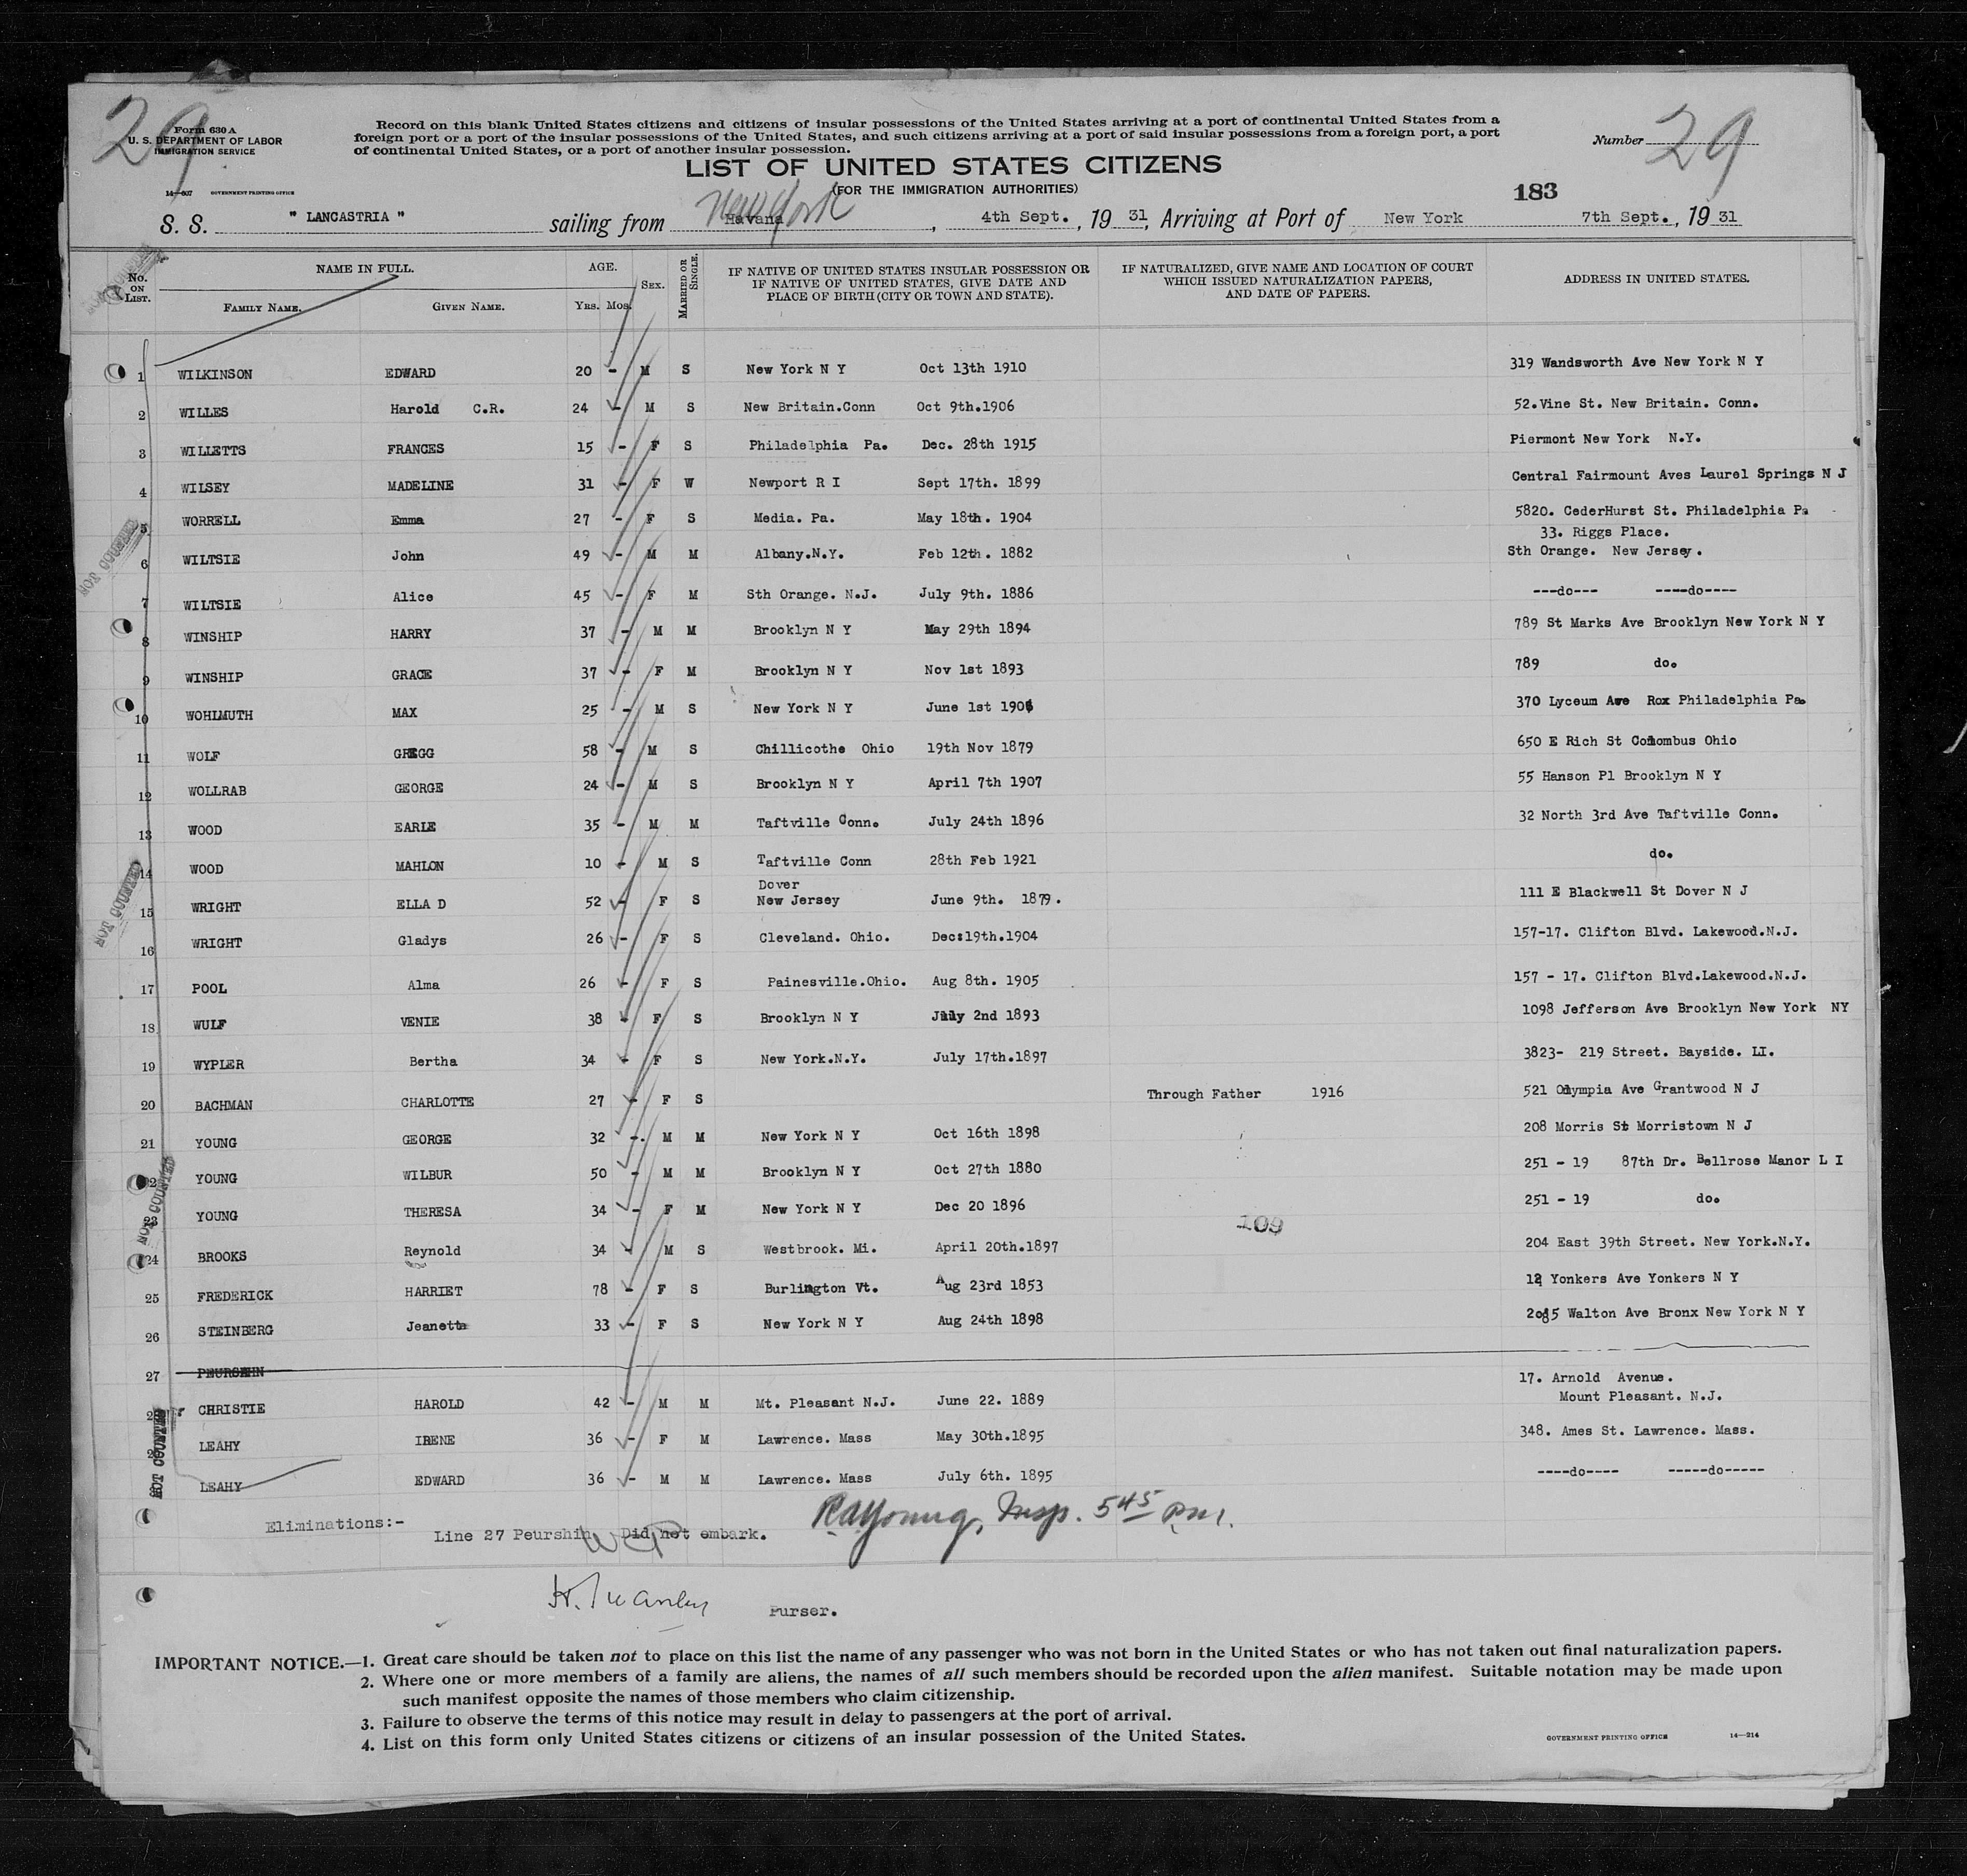 29
Form 630 A
U. S. DEPARTMENT OF LABOR
IMMIGRATION SERVICE
14—607 GOVERNMENT PRINTING OFFICE
Record on this blank United States citizens and citizens of insular possessions of the United States arriving at a port of continental United States from a
foreign port or a port of the insular possessions of the United States, and such citizens arriving at a port of said insular possessions from a foreign port, a port
of continental United States, or a port of another insular possession.
Number 29
LIST OF UNITED STATES CITIZENS
(FOR THE IMMIGRATION AUTHORITIES)
183
New York
S. S. " LANCASTRIA " sailing from Havana, 4th Sept., 19 31, Arriving at Port of New York 7th Sept., 19 31
No. ON LIST. NAME IN FULL. FAMILY NAME. GIVEN NAME. AGE. YRS. MOS. SEX. MARRIED OR SINGLE. IF NATIVE OF UNITED STATES INSULAR POSSESSION OR IF NATIVE OF UNITED STATES, GIVE DATE AND PLACE OF BIRTH (CITY OR TOWN AND STATE). IF NATURALIZED, GIVE NAME AND LOCATION OF COURT WHICH ISSUED NATURALIZATION PAPERS, AND DATE OF PAPERS. ADDRESS IN UNITED STATES.
1 WILKINSON EDWARD 20 - M S New York N Y Oct 13th 1910 319 Wandsworth Ave New York N Y
2 WILLES Harold C.R. 24 - M S New Britain.Conn Oct 9th.1906 52.Vine St. New Britain. Conn.
3 WILLETTS FRANCES 15 - F S Philadelphia Pa. Dec. 28th 1915 Piermont New York N.Y.
4 WILSEY MADELINE 31 - F W Newport R I Sept 17th. 1899 Central Fairmount Aves Laurel Springs N J
5 WORRELL Emma 27 - F S Media. Pa. May 18th. 1904 5820. CederHurst St. Philadelphia Pa
33. Riggs Place.
6 WILTSIE John 49 - M M Albany.N.Y. Feb 12th. 1882 Sth Orange. New Jersey.
7 WILTSIE Alice 45 - F M Sth Orange. N.J. July 9th. 1886 ---do--- ----do----
8 WINSHIP HARRY 37 - M M Brooklyn N Y May 29th 1894 789 St Marks Ave Brooklyn New York N Y
9 WINSHIP GRACE 37 - F M Brooklyn N Y Nov 1st 1893 789 do.
10 WOHLMUTH MAX 25 - M S New York N Y June 1st 1906 370 Lyceum Ave Rox Philadelphia Pa.
11 WOLF GREGG 58 - M S Chillicothe Ohio 19th Nov 1879 650 E Rich St Colombus Ohio
12 WOLLRAB GEORGE 24 - M S Brooklyn N Y April 7th 1907 55 Hanson Pl Brooklyn N Y
13 WOOD EARLE 35 - M M Taftville Conn. July 24th 1896 32 North 3rd Ave Taftville Conn.
14 WOOD MAHLON 10 - M S Taftville Conn 28th Feb 1921 do.
Dover
15 WRIGHT ELLA D 52 - F S New Jersey June 9th. 1879. 111 E Blackwell St Dover N J
16 WRIGHT Gladys 26 - F S Cleveland. Ohio. Dec:19th.1904 157-17. Clifton Blvd. Lakewood.N.J.
17 POOL Alma 26 - F S Painesville.Ohio. Aug 8th. 1905 157 - 17. Clifton Blvd.Lakewood.N.J.
18 WULF VENIE 38 - F S Brooklyn N Y July 2nd 1893 1098 Jefferson Ave Brooklyn New York NY
19 WYPLER Bertha 34 - F S New York.N.Y. July 17th.1897 3823- 219 Street. Bayside. LI.
20 BACHMAN CHARLOTTE 27 - F S Through Father 1916 521 Olympia Ave Grantwood N J
21 YOUNG GEORGE 32 - M M New York N Y Oct 16th 1898 208 Morris St Morristown N J
22 YOUNG WILBUR 50 - M M Brooklyn N Y Oct 27th 1880 251 - 19 87th Dr. Bellrose Manor L I
23 YOUNG THERESA 34 - F M New York N Y Dec 20 1896 251 - 19 do.
109
24 BROOKS Reynold 34 - M S Westbrook. Mi. April 20th.1897 204 East 39th Street. New York.N.Y.
25 FREDERICK HARRIET 78 - F S Burlington Vt. Aug 23rd 1853 12 Yonkers Ave Yonkers N Y
26 STEINBERG Jeanette 33 - F S New York N Y Aug 24th 1898 2085 Walton Ave Bronx New York N Y
27 PEURSHIN
17. Arnold Avenue.
28 CHRISTIE HAROLD 42 - M M Mt. Pleasant N.J. June 22. 1889 Mount Pleasant. N.J.
29 LEAHY IRENE 36 - F M Lawrence. Mass May 30th.1895 348. Ames St. Lawrence. Mass.
LEAHY EDWARD 36 - M M Lawrence. Mass July 6th. 1895 ----do---- -----do-----
NOT COUNTED
NOT COUNTED
NOT COUNTED
NOT COUNTED
NOT COUNTED
Eliminations:-
Line 27 Peurshin Did not embark.
RAYoung, Insp. 5 45 pm.
Purser.
IMPORTANT NOTICE.—1. Great care should be taken not to place on this list the name of any passenger who was not born in the United States or who has not taken out final naturalization papers.
2. Where one or more members of a family are aliens, the names of all such members should be recorded upon the alien manifest. Suitable notation may be made upon
such manifest opposite the names of those members who claim citizenship.
3. Failure to observe the terms of this notice may result in delay to passengers at the port of arrival.
4. List on this form only United States citizens or citizens of an insular possession of the United States.
GOVERNMENT PRINTING OFFICE 14—214